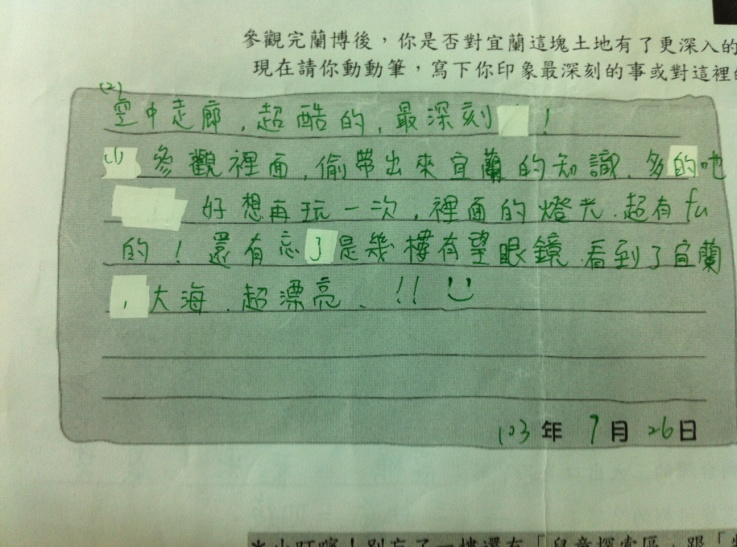 參觀完蘭博後，你是否對宜蘭這塊土地有了更深入的
現在請你動動筆，寫下你印象最深刻的事或對這裡
(2)
空中走廊，超酷的，最深刻！
(1) 參觀裡面，偷帶出來宜蘭的知識，多的吔
好想再玩一次，裡面的燈光，超有fu
的！還有忘了是幾樓有望眼鏡，看到了宜蘭
，大海，超漂亮、!!
103年 7月 26日
＊小叮嚀！別忘了一樓還有「兒童探索區」跟「